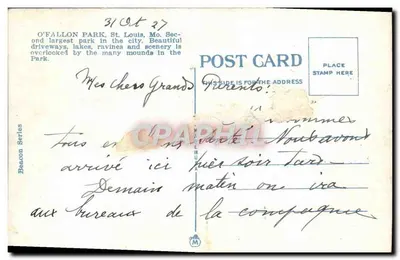 31 Oct 27
O'FALLON PARK, St. Louis, Mo. Sec-
ond largest park in the city. Beautiful
driveways, lakes, ravines and scenery is
overlooked by the many mounds in the
Park.
POST CARD
THIS SIDE IS FOR THE ADDRESS
PLACE
STAMP HERE
Beacon Series
Mes chers Grands Parents:
sommes
tous en bonne santé Nous avons
arrivé ici hier soir tard
Demain matin on ira
aux bureaux de la compagnie
CPARTPHIL
M